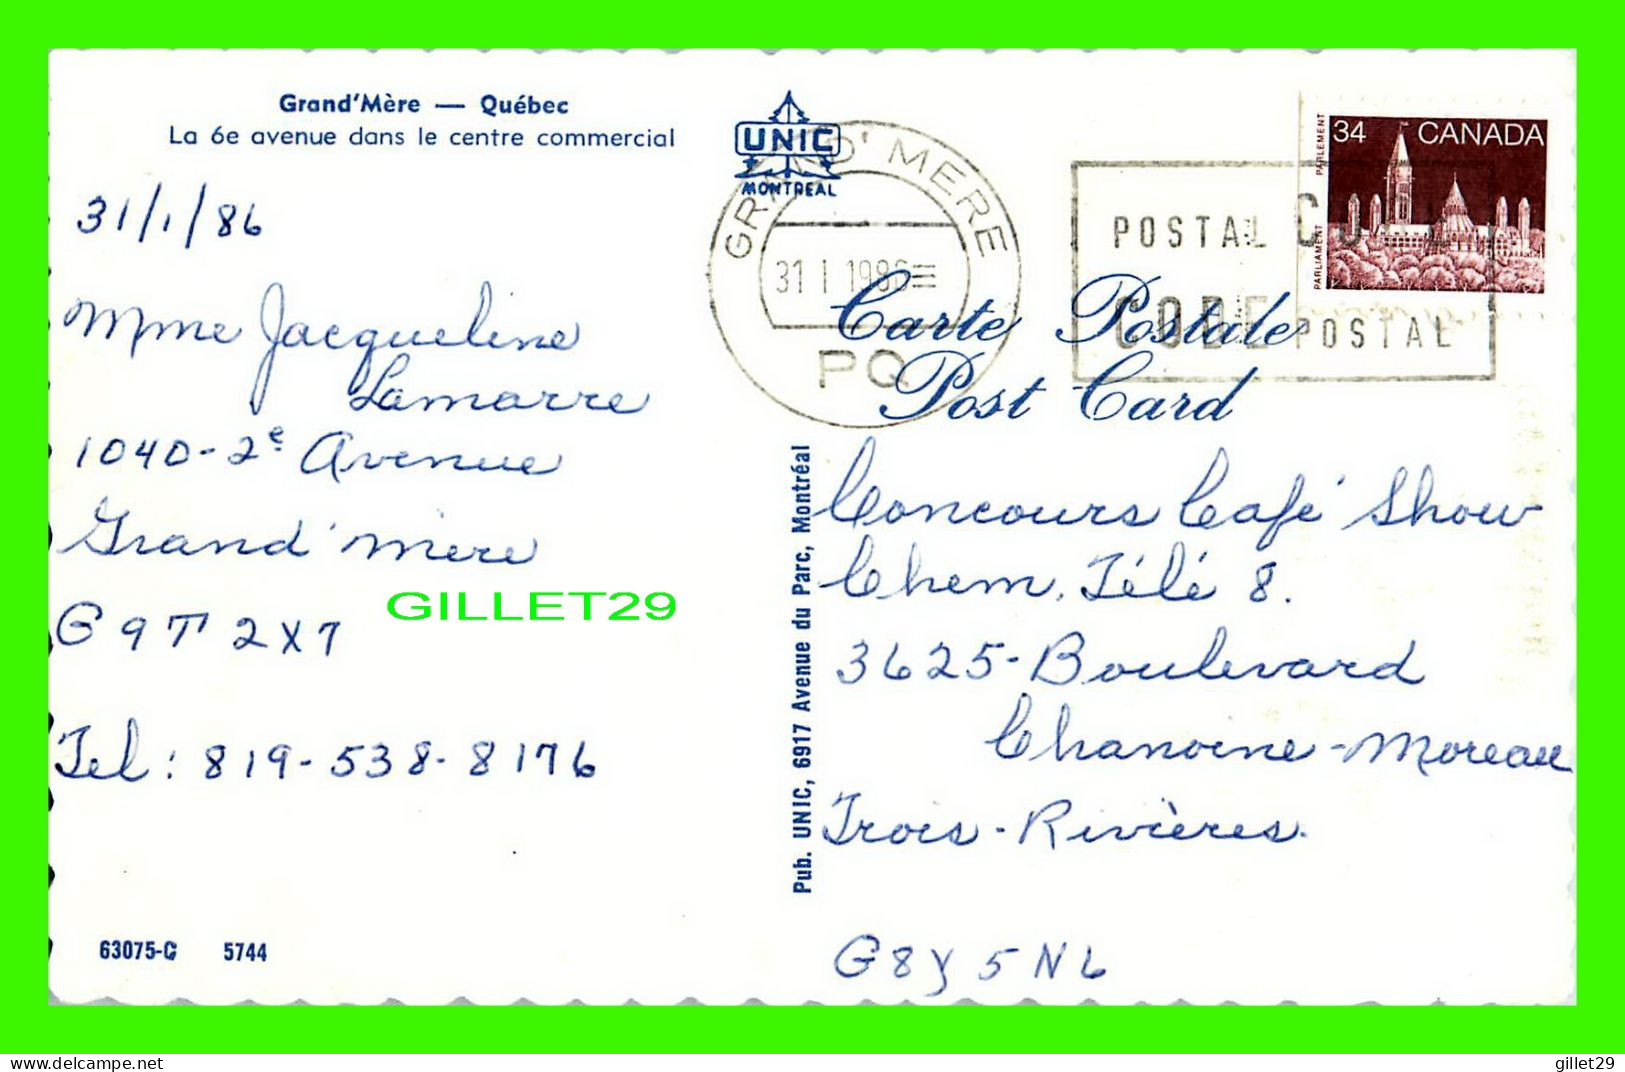 Grand'Mère — Québec
La 6e avenue dans le centre commercial
31/1/86
Mme Jacqueline
Lamarre
1040-2e Avenue
Grand'mère
G9T 2X7
Tel: 819-538-8176
63075-C 5744
GILLET29
UNIC
MONTREAL
GRAND'MERE
31 I 1986
PQ
POSTAL CODE
CODE POSTAL
34 CANADA
PARLIAMENT PARLEMENT
Carte Postale
Post Card
Pub. UNIC, 6917 Avenue du Parc, Montréal
Concours Café Show
Chem. Télé 8.
3625-Boulevard
Chanoine-Moreau
Trois-Rivières.
G8Y 5N6
gillet29